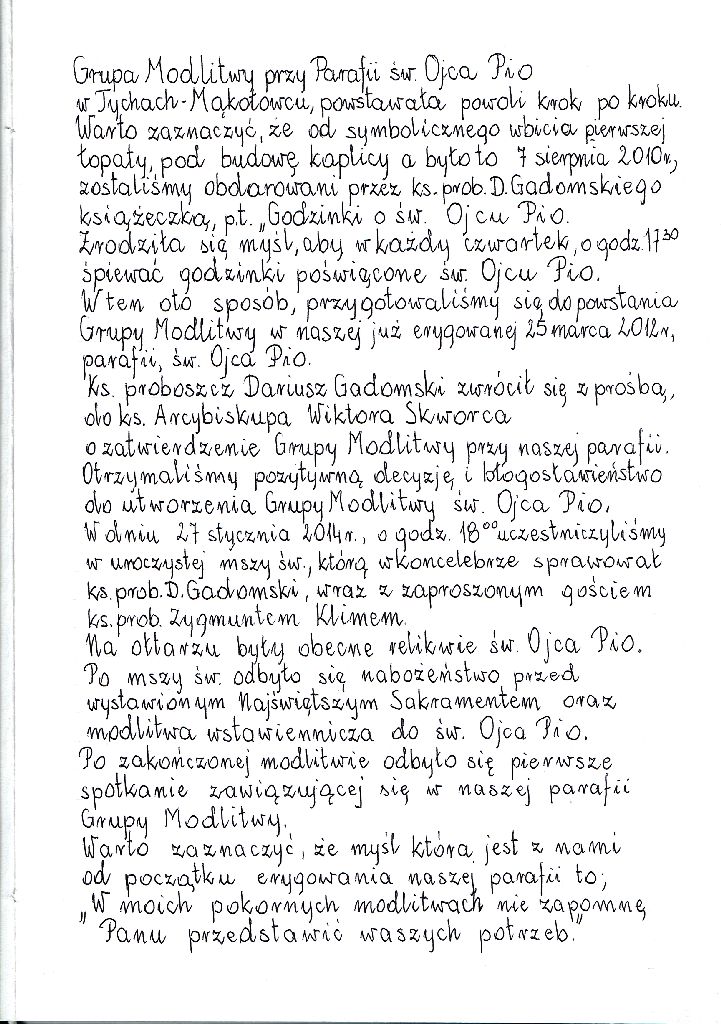 Grupa Modlitwy przy Parafii św. Ojca Pio
w Tychach-Mąkołowcu, powstawała powoli krok po kroku.
Warto zaznaczyć, że od symbolicznego wbicia pierwszej
łopaty, pod budowę kaplicy a było to 7 sierpnia 2010r,
zostaliśmy obdarowani przez ks. prob. D. Gadomskiego
książeczką, p.t. „Godzinki o św. Ojcu Pio.
Zrodziła się myśl, aby w każdy czwartek, o godz. 17³⁰
śpiewać godzinki poświęcone św. Ojcu Pio.
W ten oto sposób, przygotowaliśmy się do powstania
Grupy Modlitwy w naszej już erygowanej 25 marca 2012r,
parafii, św. Ojca Pio.
Ks. proboszcz Dariusz Gadomski zwrócił się z prośbą,
do ks. Arcybiskupa Wiktora Skworca
o zatwierdzenie Grupy Modlitwy przy naszej parafii.
Otrzymaliśmy pozytywną decyzję i błogosławieństwo
do utworzenia Grupy Modlitwy św. Ojca Pio.
W dniu 27 stycznia 2014r., o godz. 18⁰⁰ uczestniczyliśmy
w uroczystej mszy św., którą w koncelebrze sprawował
ks. prob. D. Gadomski, wraz z zaproszonym gościem
ks. prob. Zygmuntem Klimem.
Na ołtarzu były obecne relikwie św. Ojca Pio.
Po mszy św. odbyło się nabożeństwo przed
wystawionym Najświętszym Sakramentem oraz
modlitwa wstawiennicza do św. Ojca Pio.
Po zakończonej modlitwie odbyło się pierwsze
spotkanie zawiązującej się w naszej parafii
Grupy Modlitwy.
Warto zaznaczyć, że myśl która jest z nami
od początku erygowania naszej parafii to;
„W moich pokornych modlitwach nie zapomnę
Panu przedstawić waszych potrzeb."